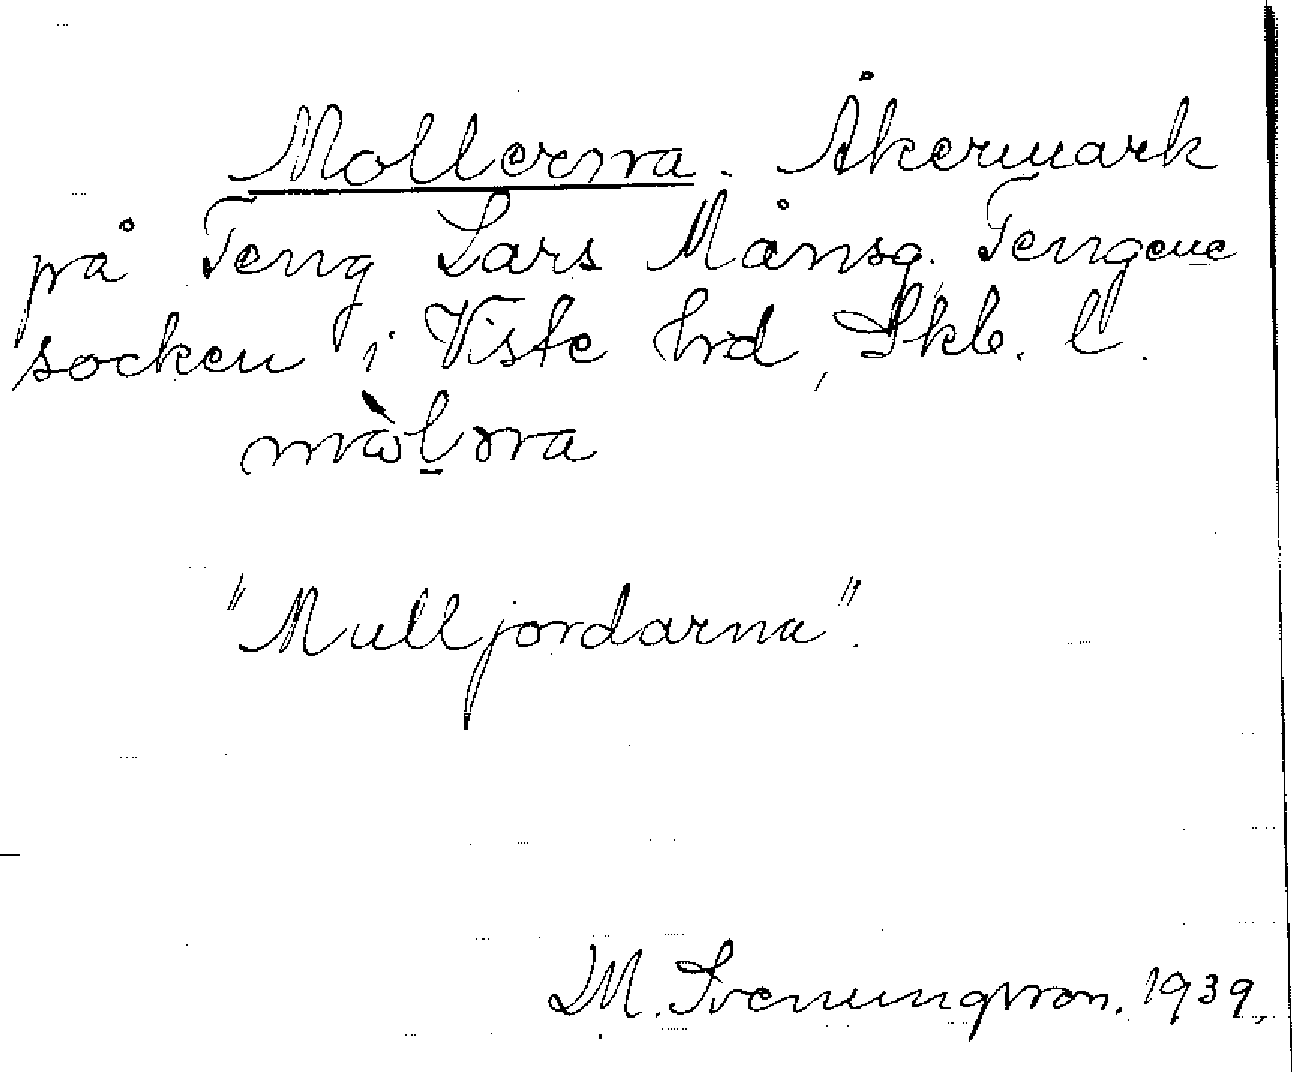 Mollerna. Åkermark
på Teng Lars Månsg. Tengene
socken i Viste hrd, Skb. l.
mòḻəna
"Mulljordarna".
M. Svenungsson. 1939.